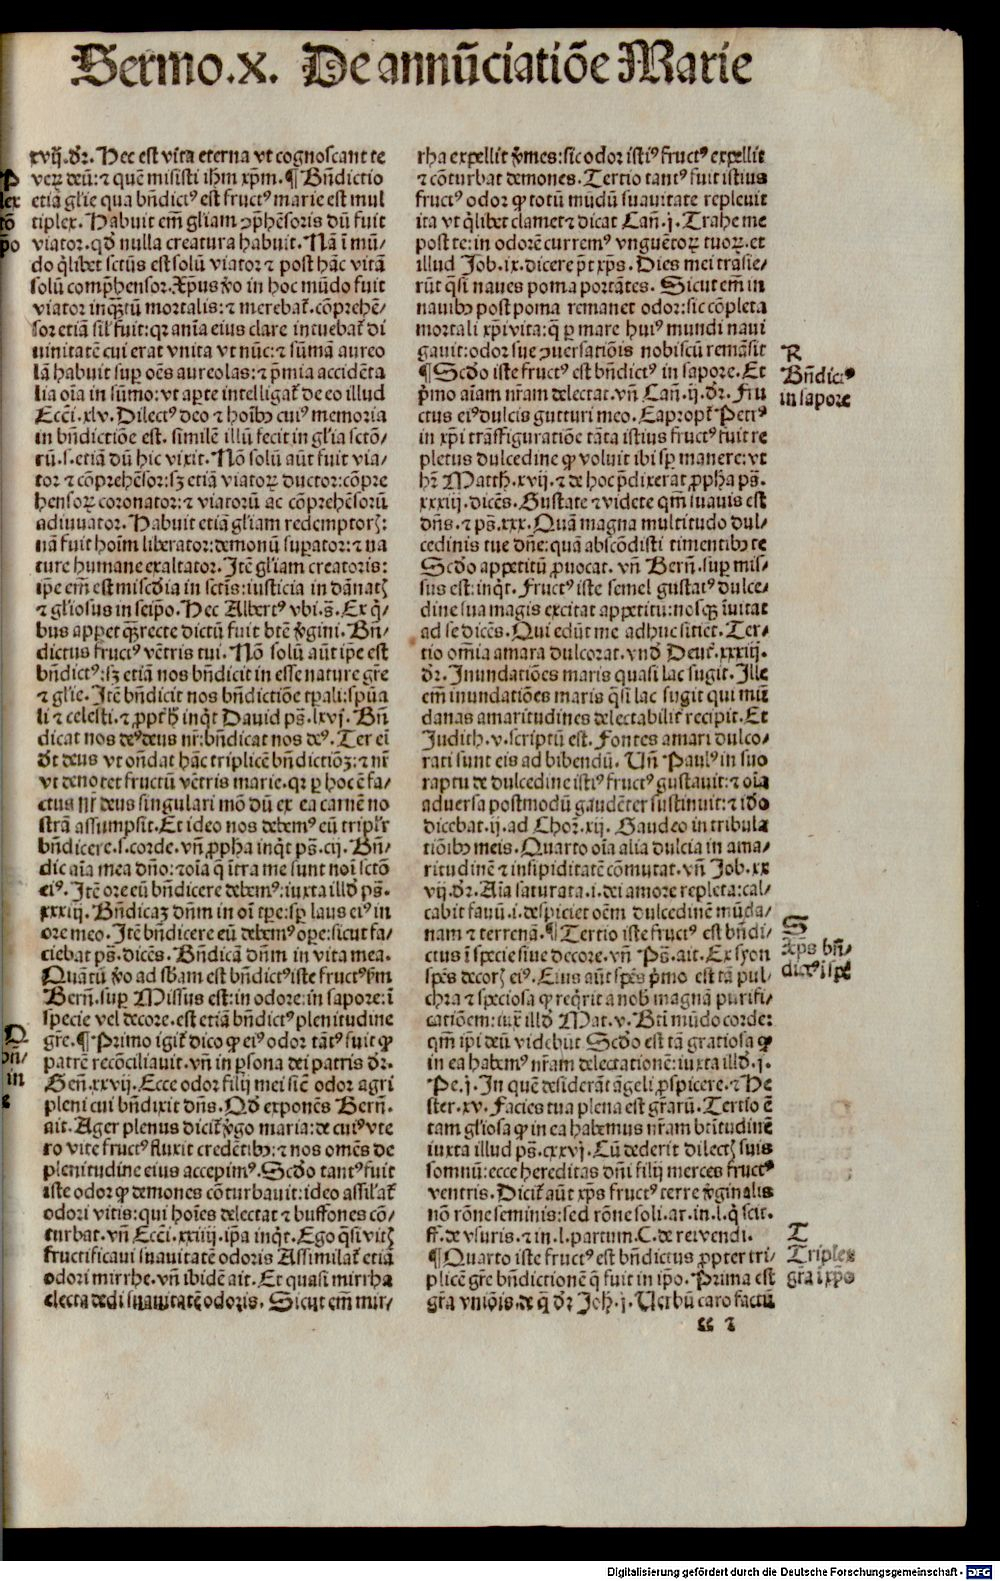 Sermo.x. De annu̅ciatio̅e Marie
xvij.dr̃. Hec est vita eterna vt cognoscant te
verꝝ deū:⁊ quē misisti ihm̄ xp̄m.¶ Bn̄dictio
etiā gl̄ie qua bn̄dictꝰ est fructꝰ marie est mul
tiplex. Habuit em̄ gl̄iam ꝯp̄hēsoris dū fuit
viator.qd̄ nulla creatura habuit. Nā ī mū⸗
do q̄libet sctūs est solū viator ⁊ post hāc vitā
solū comp̄hensor. Xp̄us v̄o in hoc mūdo fuit
viator inqꝫtū mortalis:⁊ merebat̄. cōprehē⸗
sor etiā sil̄ fuit:qꝛ aīa eius clare intuebat̄ di
uinitatē cui erat vnita vt nūc:⁊ sūmā aureo
lā habuit suꝑ oēs aureolas:⁊ p̄mia accidēta
lia oīa in sūmo:vt aꝑte intelligat̄ de eo illud
Ecc̄i.xlv. Dilectꝰ deo ⁊ hoībꝫ cuiꝰ memoria
in bn̄dictiōe est. similē illū fecit in gl̄ia sctō⸗
rū.s.etiā dū hic vixit. Nō solū aūt fuit via⸗
tor ⁊ cōprehēsor:sꝫ etiā viatorꝝ ductor:cōpre
hensorꝝ coronator:⁊ viatorū ac cōprehēsorū
adiuuator. Habuit etiā gl̄iam redemptorꝭ:
nā fuit hoīm liberator:demonū suꝑator:⁊ na
ture humane exaltator. Itē gl̄iam creatoris:
ip̄e em̄ est misc̄dia in sctīs:iusticia in dānatꝭ
⁊ gl̄iosus in seip̄o. Hec Albertꝰ vbi.s̄. Ex q̄⸗
bus apꝑet qꝫ recte dictū fuit btē v̄gini. Bn̄⸗
dictus fructꝰ vētris tui. Nō solū aūt ip̄e est
bn̄dictꝰ:sꝫ etiā nos bn̄dicit in esse nature gr̄e
⁊ gl̄ie. Itē bn̄dicit nos bn̄dictiōe tꝑali:spūa
li ⁊ celesti.⁊ ꝓpt̄h̄ inq̄t Dauid ps̄.lxvj. Bn̄
dicat nos deꝰ deus nr̄:bn̄dicat nos deꝰ. Ter eī
dr̄t deus vt on̄dat hāc triplicē bn̄dictiōꝫ:⁊ nr̄
vt denotet fructū vētris marie.qꝛ ꝑ hoc ē fa⸗
ctus nr̄ deus singulari mō dū ex ea carnē no
strā assumpsit. Et ideo nos debemꝰ eū tripl̄r
bn̄dicere.s.corde. vn̄ ꝓpha inq̄t ps̄.cij. Bn̄⸗
dic aīa mea dn̄o:⁊ oīa q̄ ītra me sunt noī sctō
eiꝰ. Itē ore eū bn̄dicere debemꝰ:iuxta illd̄ ps̄.
xxxiij. Bn̄dicaꝫ dn̄m in oī tꝑe:sꝑ laus eiꝰ in
ore meo. Itē bn̄dicere eū debemꝰ oꝑe:sicut fa⸗
ciebat ps̄.dicēs. Bn̄dicā dn̄m in vita mea.
Quātū v̄o ad sb̄am est bn̄dictꝰ iste fructꝰ ẜm
Bern̄.suꝑ Missus est:in odore:in sapore:ī
specie vel decore.est etiā bn̄dictꝰ plenitudine
gr̄e.¶ Primo igit̄ dico ꝙ eiꝰ odor tātꝰ fuit ꝙ
patrē recōciliauit. vn̄ in ꝑsona dei patris dr̄.
Gen̄.xxvij. Ecce odor filij mei sic̄ odor agri
pleni cui bn̄dixit dn̄s. Qd̄ exponēs Bern̄.
ait. Ager plenus dicit̄ v̄go maria:de cuiꝰ vte
ro vite fructꝰ fluxit credētibꝫ:⁊ nos omēs de
plenitudine eius accepimꝰ. Scd̄o tantꝰ fuit
iste odor ꝙ demones cōturbauit:ideo assilat̄
odori vitis:qui hoīes delectat ⁊ buffones cō⸗
turbat. vn̄ Ecc̄i.xxiiij.ip̄a inq̄t. Ego q̄si vitꝭ
fructificaui suauitatē odoris Assimilat̄ etiā
odori mirrhe. vn̄ ibidē ait. Et quasi mirrha
electa dedi suauitatē odoris. Sicut em̄ mir⸗
P
lex
tō
p̄o
Q
bn̄/
in
rha expellit v̄mes:sic odor istiꝰ fructꝰ expellit
⁊ cōturbat demones. Tertio tantꝰ fuit istius
fructꝰ odor ꝙ totū mūdū suauitate repleuit
ita vt q̄libet clamet ⁊ dicat Cañ.j. Trahe me
post te:in odorē curremꝰ vnguētorꝝ tuorꝝ.et
illud Job.ix.dicere p̄t xp̄s. Dies mei trāsie⸗
rūt q̄si naues poma portātes. Sicut em̄ in
nauibꝫ post poma remanet odor:sic cōpleta
mortali xp̄i vita:q̄ ꝑ mare huiꝰ mundi naui
gauit:odor sue ꝯuersatiōis nobiscū remāsit
¶ Scd̄o iste fructꝰ est bn̄dictꝰ in sapore. Et
p̄mo aīam nr̄am delectat. vn̄ Cañ.ij.dr̄. Fru
ctus eiꝰ dulcis gutturi meo. Eapropt̄ Petrꝰ
in xp̄i trāsfiguratiōe tāta istius fructꝰ fuit re
pletus dulcedine ꝙ voluit ibi sꝑ manere:vt
hr̄ Matth̄.xvij.⁊ de hoc p̄dixerat ꝓpha ps̄.
xxxiij.dicēs. Gustate ⁊ videte qm̄ suauis est
dn̄s.⁊ ps̄.xxx. Quā magna multitudo dul⸗
cedinis tue dn̄e:quā abscōdisti timentibꝫ te
Scd̄o appetitū ꝓuocat. vn̄ Bern̄.suꝑ mis⸗
sus est:inq̄t. Fructꝰ iste semel gustatꝰ dulce⸗
dine sua magis excitat appetitū:nosqꝫ īuitat
ad se dicēs. Qui edūt me adhuc sitiēt. Ter⸗
tio om̄ia amara dulcorat.vnd̄ Deut̄.xxxiij.
dr̄. Inundatiōes maris quasi lac sugit. Ille
em̄ inundatiōes maris q̄si lac sugit qui mū
danas amaritudines delectabilit̄ recipit. Et
Judith.v.scriptū est. Fontes amari dulco⸗
rati sunt eis ad bibendū. Vn̄ Paulꝰ in suo
raptu de dulcedine istiꝰ fructꝰ gustauit:⁊ oīa
aduersa postmodū gaudēter sustinuit:⁊ id̄o
dicebat.ij.ad Chor̄.xij. Gaudeo in tribula
tiōibꝫ meis. Quarto oīa alia dulcia in ama⸗
ritudinē ⁊ insipiditatē cōmutat. vn̄ Job.xx
vij.dr̄. Aīa saturata.i.dei amore repleta:cal⸗
cabit fauū.i.despiciet oēm dulcedinē mūda⸗
nam ⁊ terrenā.¶ Tertio iste fructꝰ est bn̄di⸗
ctus ī specie siue decore. vn̄ Ps̄.ait. Ex syon
spēs decorꝭ eiꝰ. Eius aūt spēs p̄mo est tā pul⸗
chra ⁊ speciosa ꝙ reqr̄it a nob̄ magnā purifi⸗
catiōem:iux̄ illd̄ Mat.v. Btī mūdo corde:
qm̄ ip̄i deū videbūt Scd̄o est tā gratiosa ꝙ
in ea habemꝰ nr̄am delectationē:iuxta illd̄.j.
Pe.j. In quē desiderāt āgeli ꝓspicere.⁊ He
ster.xv. Facies tua plena est gr̄arū. Tertio ē
tam gl̄iosa ꝙ in ea habemus nr̄am btītudinē
iuxta illud ps̄.cxxvj. Cū dederit dilectꝭ suis
somnū:ecce hereditas dn̄i filij merces fructꝰ
ventris. Dicit̄ aūt xp̄s fructꝰ terre v̄ginalis
nō rōne seminis:sed rōne soli.ar.in.l.q̄ scit.
ff.de vsuris.⁊ in.l.partum.C.de rei vendi.
¶ Quarto iste fructꝰ est bn̄dictus ꝓpter tri⸗
plicē gr̄e bn̄dictionē q̄ fuit in ip̄o. Prima est
gr̄a vniōis.de q̄ dr̄ Joh̄.j. Verbū caro factū
R
Bn̄dictꝰ
in sapore
S
Xp̄s bn̄⸗
dictꝰ ī spē
T
Triplex
gr̄a ī xp̄o